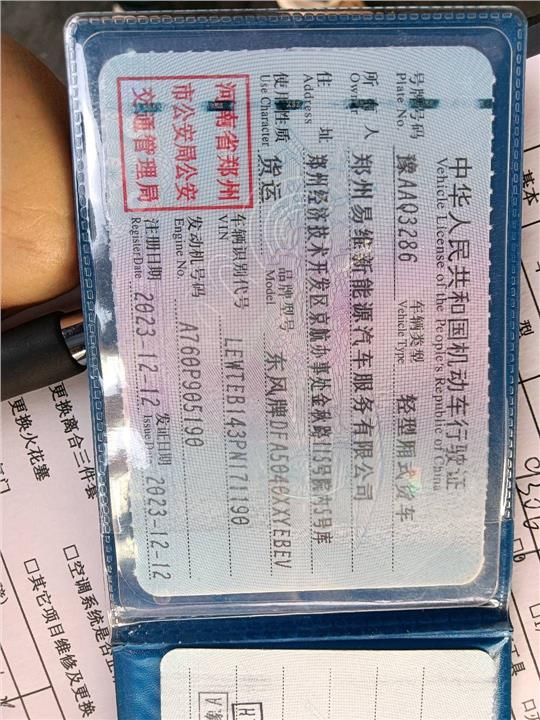 中华人民共和国机动车行驶证
Vehicle License of the People's Republic of China
号牌号码 豫AAQ3286 车辆类型 轻型厢式货车
Plate No. Vehicle Type
所有人 郑州易维新能源汽车服务有限公司
Owner
住址 郑州经济技术开发区京航办事处金秋路115号院内5号库
Address
使用性质 货运 品牌型号 东风牌DFA5040XXYEBEV
Use Character Model
河南省郑州
市公安局公安
交通管理局
车辆识别代号 LEWTEB143PN171190
VIN
发动机号码 A760P905190
Engine No.
注册日期 2023-12-12 发证日期 2023-12-12
Register Date Issue Date
基本
型
更换离合三件套
更换火花塞
□空调系统是否正
□其它项目维修及更换